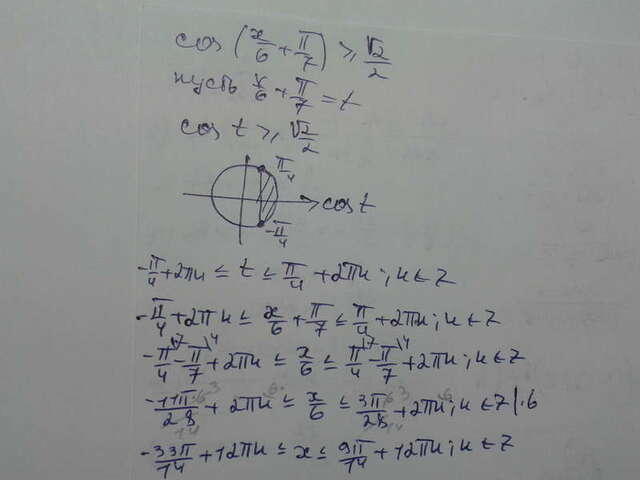 cos(x/6 + π/7) ≥ √2/2
пусть x/6 + π/7 = t
cos t ≥ √2/2
π/4
cos t
-π/4
-π/4 + 2πn ≤ t ≤ π/4 + 2πn; n ∈ Z
-π/4 + 2πn ≤ x/6 + π/7 ≤ π/4 + 2πn; n ∈ Z
-π/4\7 - π/7\4 + 2πn ≤ x/6 ≤ π/4\7 - π/7\4 + 2πn; n ∈ Z
-11π/28 + 2πn ≤ x/6 ≤ 3π/28 + 2πn; n ∈ Z |·6
-33π/14 + 12πn ≤ x ≤ 9π/14 + 12πn; n ∈ Z